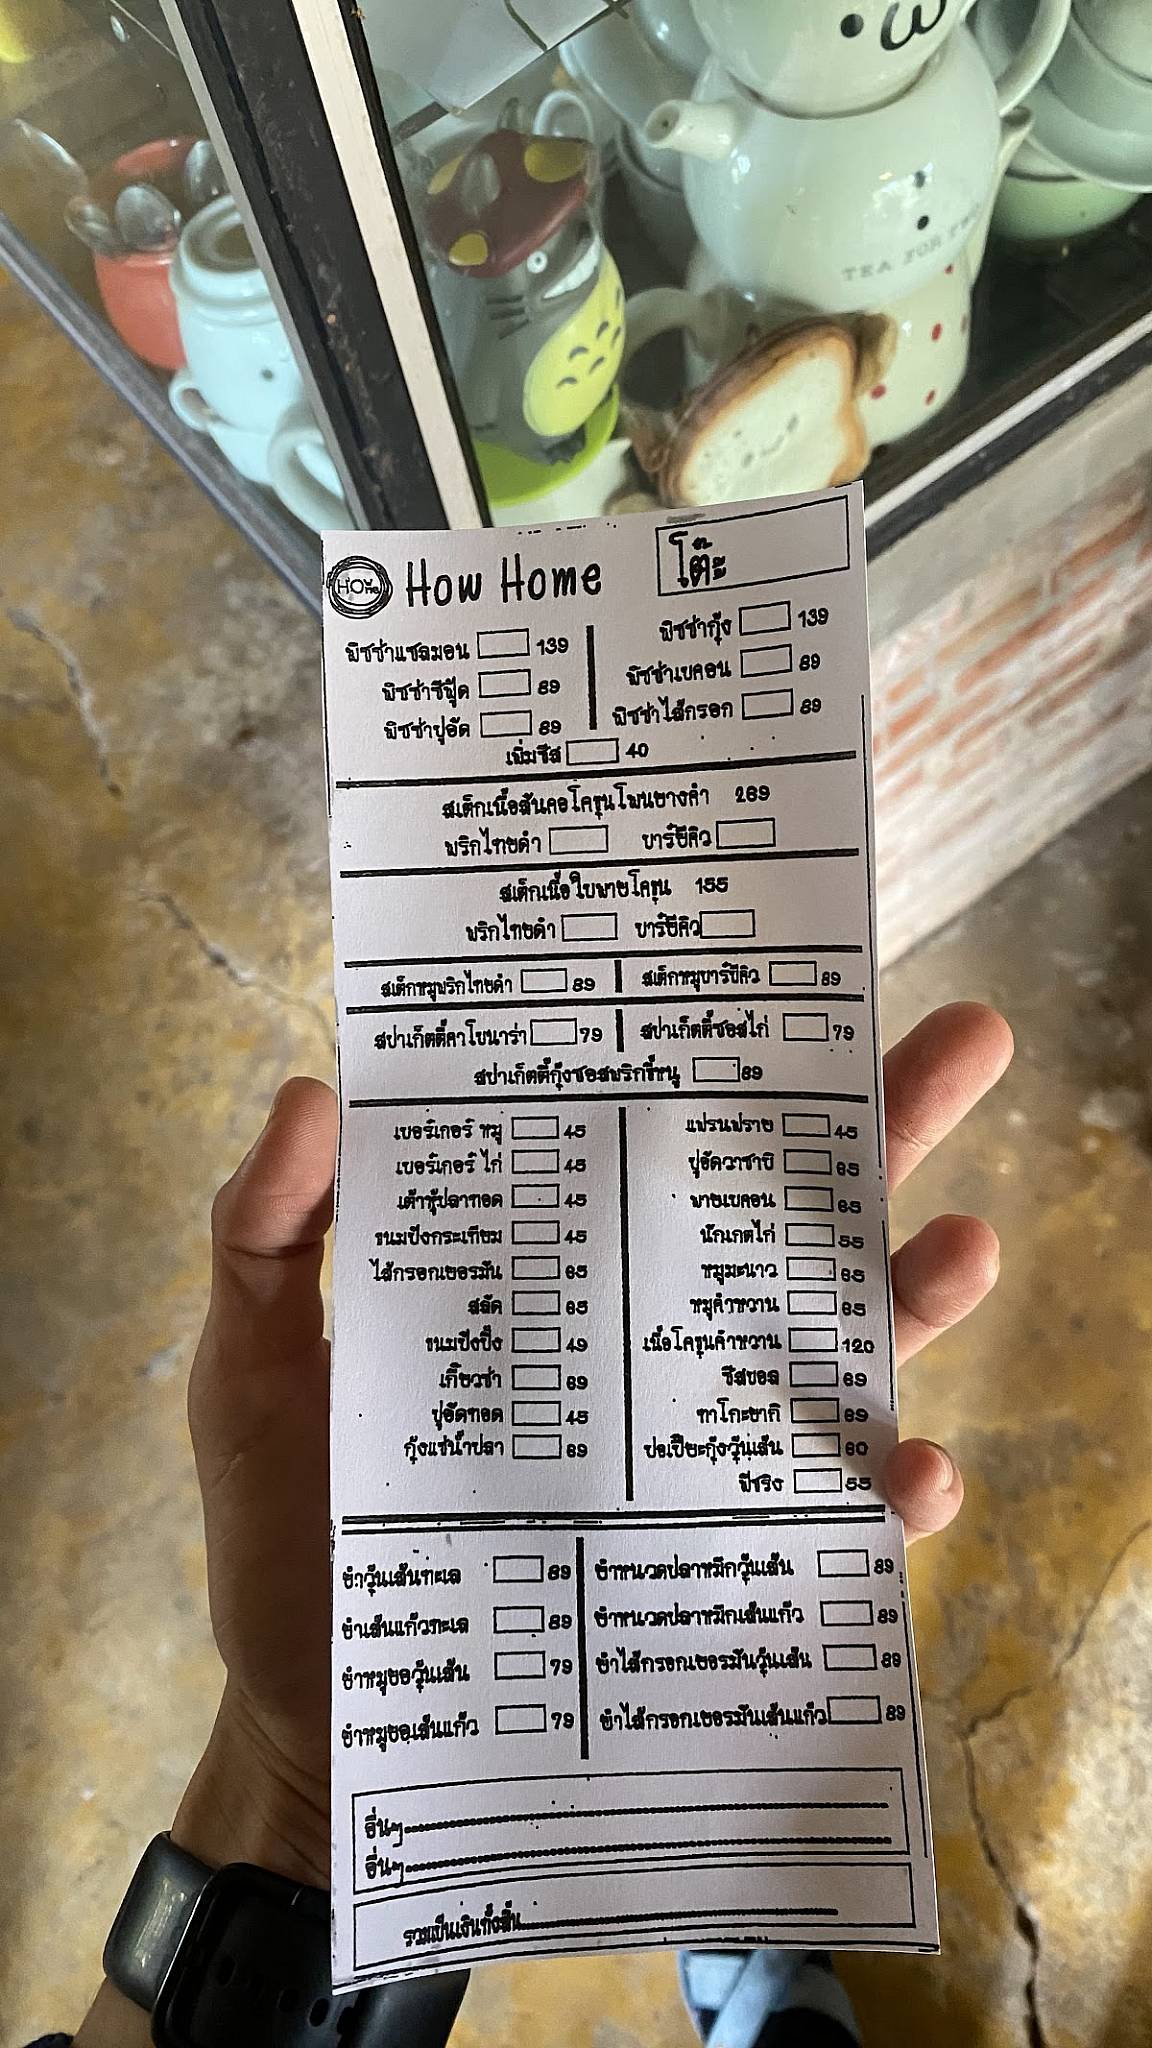 TEA FOR TWO
HOW HOme
How Home
โต๊ะ
พิซซ่าแซลมอน 139 พิซซ่ากุ้ง 139
พิซซ่าซีฟู้ด 89 พิซซ่าเบคอน 89
พิซซ่าปูอัด 89 พิซซ่าไส้กรอก 89
เพิ่มชีส 40
สเต็กเนื้อสันคอโคขุนโพนยางคำ 289
พริกไทยดำ บาร์บีคิว
สเต็กเนื้อใบพายโคขุน 155
พริกไทยดำ บาร์บีคิว
สเต็กหมูพริกไทยดำ 89 สเต็กหมูบาร์บีคิว 89
สปาเก็ตตี้คาโบนาร่า 79 สปาเก็ตตี้ซอสไก่ 79
สปาเก็ตตี้กุ้งซอสพริกขี้หนู 89
เบอร์เกอร์ หมู 45
เบอร์เกอร์ ไก่ 45
เต้าหู้ปลาทอด 45
ขนมปังกระเทียม 45
ไส้กรอกเยอรมัน 65
สลัด 65
ขนมปังปิ้ง 49
เกี๊ยวซ่า 69
ปูอัดทอด 45
กุ้งแช่น้ำปลา 89
แฟรนฟราย 45
ปูอัดวาซาบิ 65
พายเบคอน 65
นักเกตไก่ 55
หมูมะนาว 65
หมูคำหวาน 65
เนื้อโคขุนคำหวาน 120
ชีสบอล 69
ทาโกะยากิ 69
ปอเปี๊ยะกุ้งวุ้นเส้น 60
ชีริง 55
ยำวุ้นเส้นทะเล 89 ยำหนวดปลาหมึกวุ้นเส้น 89
ยำเส้นแก้วทะเล 89 ยำหนวดปลาหมึกเส้นแก้ว 89
ยำหมูยอวุ้นเส้น 79 ยำไส้กรอกเยอรมันวุ้นเส้น 89
ยำหมูยอเส้นแก้ว 79 ยำไส้กรอกเยอรมันเส้นแก้ว 89
อื่นๆ
อื่นๆ
รวมเป็นเงินทั้งสิ้น